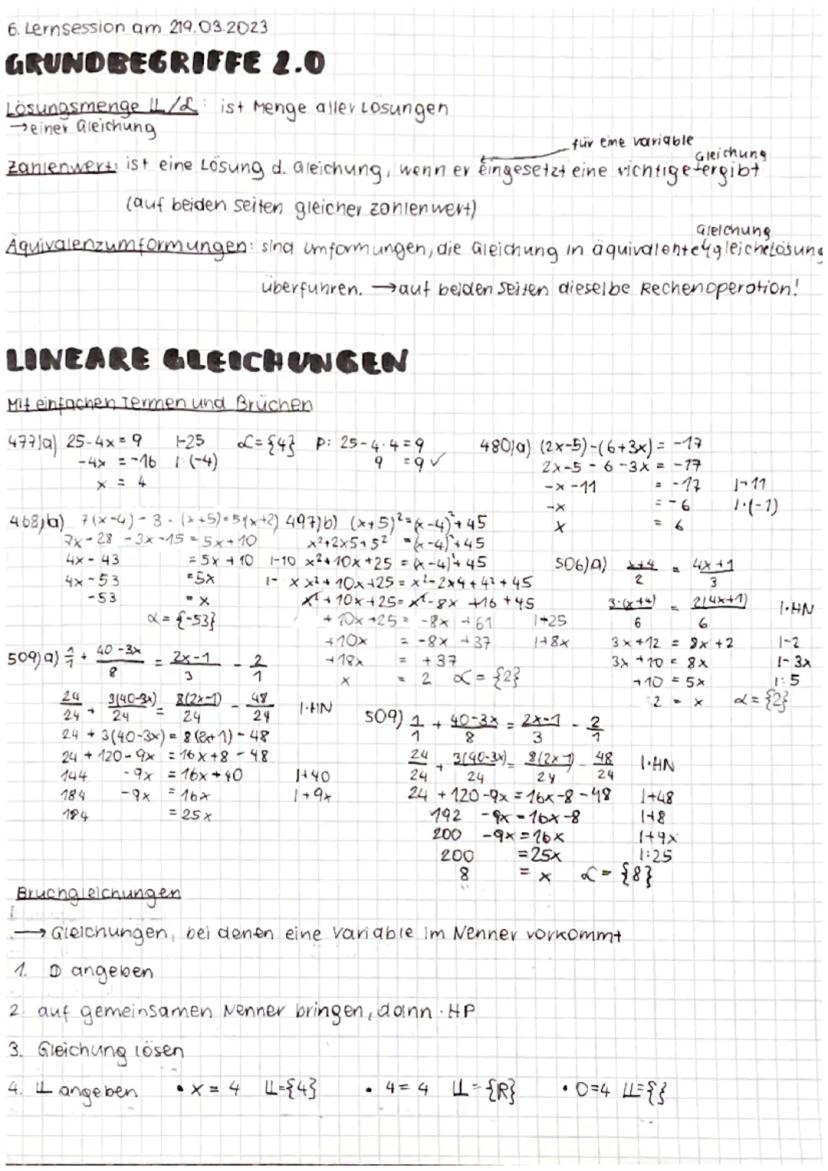 6. Lernsession am 219.03.2023
GRUNDBEGRIFFE 2.0
Lösungsmenge 𝕃/ℒ: ist Menge aller Lösungen
→einer Gleichung
für eine Variable
Gleichung
Zahlenwert: ist eine Lösung d. Gleichung, wenn er eingesetzt eine richtige ergibt
(auf beiden Seiten gleicher Zahlenwert)
Gleichung
Äquivalenzumformungen: sind Umformungen, die Gleichung in äquivalente gleiche Lösung
überführen. →auf beiden Seiten dieselbe Rechenoperation!
LINEARE GLEICHUNGEN
Mit einfachen Termen und Brüchen
477)a) 25-4x=9 |-25 ℒ={4} P: 25-4·4=9
-4x = -16 |:(-4) 9 =9 ✓
x = 4
480)a) (2x-5)-(6+3x) = -17
2x-5-6-3x = -17
-x-11 = -17 |+11
-x = -6 |·(-1)
x = 6
468)b) 7(x-4)-3·(x+5)=5(x+2)
7x-28-3x-15=5x+10
4x-43 =5x+10 |-10
4x-53 =5x |-x
-53 = x
ℒ={-53}
497)b) (x+5)²=(x-4)²+45
x²+2x5+5² =(x-4)²+45
x²+10x+25 = (x-4)²+45
x²+10x+25 = x²-2x4+4²+45
x²+10x+25= x²-8x +16+45
+10x+25= -8x +61 |+25
+10x = -8x +37 |+8x
+18x = +37
x = 2 ℒ={2}
506)a) x+4/2 = 4x+1/3
3·(x+4)/6 = 2(4x+1)/6 |·HN
3x+12 = 8x+2 |-2
3x+10 = 8x |-3x
+10 = 5x |:5
2 = x ℒ={2}
509)a) 1/1 + 40-3x/8 = 2x-1/3 - 2/1
24/24 + 3(40-3x)/24 = 8(2x-1)/24 - 48/24 |·HN
24+3(40-3x)=8(2x+1)-48
24+120-9x =16x+8-48
144 -9x =16x+40 |+40
184 -9x =16x |+9x
184 =25x
509) 1/1 + 40-3x/8 = 2x-1/3 - 2/1
24/24 + 3(40-3x)/24 = 8(2x-1)/24 - 48/24 |·HN
24+120-9x=16x-8-48 |+48
192 -9x=16x-8 |+8
200 -9x=16x |+9x
200 =25x |:25
8 = x ℒ={8}
Bruchgleichungen
→ Gleichungen, bei denen eine Variable im Nenner vorkommt
1. 𝔻 angeben
2. auf gemeinsamen Nenner bringen, dann ·HP
3. Gleichung lösen
4. 𝕃 angeben • x=4 𝕃={4} • 4=4 𝕃={R} • 0=4 𝕃={}